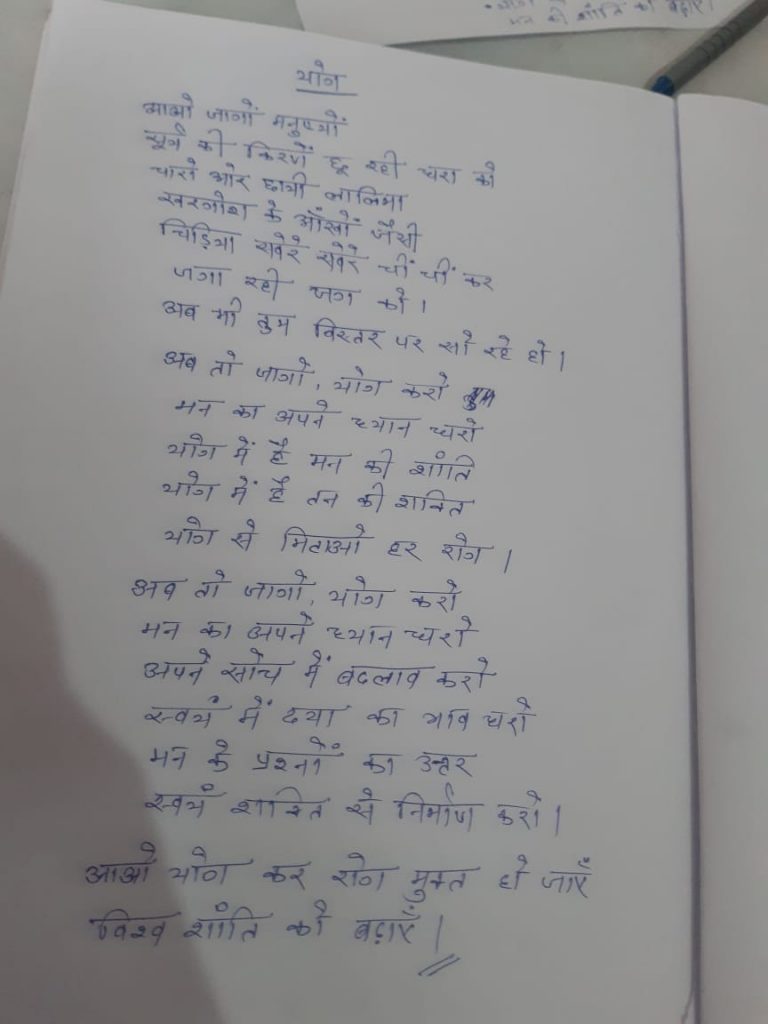 मन की शांति को बढ़ाएँ।
योग
आओ जागों मनुष्यों
सूर्य की किरणें छू रही धरा को
चारो ओर छायी लालिमा
खरगोश के आँखों जैसी
चिड़िया सवेरे सवेरे चीं चीं कर
जगा रही जग को।
अब भी तुम बिस्तर पर सो रहे हो।
अब तो जागो, योग करो तुम
मन का अपने ध्यान धरो
योग में है मन की शांति
योग में है तन की शक्ति
योग से मिटाओ हर रोग।
अब तो जागो, योग करो
मन का अपने ध्यान धरो
अपने सोच में बदलाव करो
स्वयं में दया का भाव धरो
मन के प्रश्नों का उत्तर
स्वयं शक्ति से निर्माण करो।
आओ योग कर रोग मुक्त हो जाएँ
विश्व शांति को बढ़ाएँ।